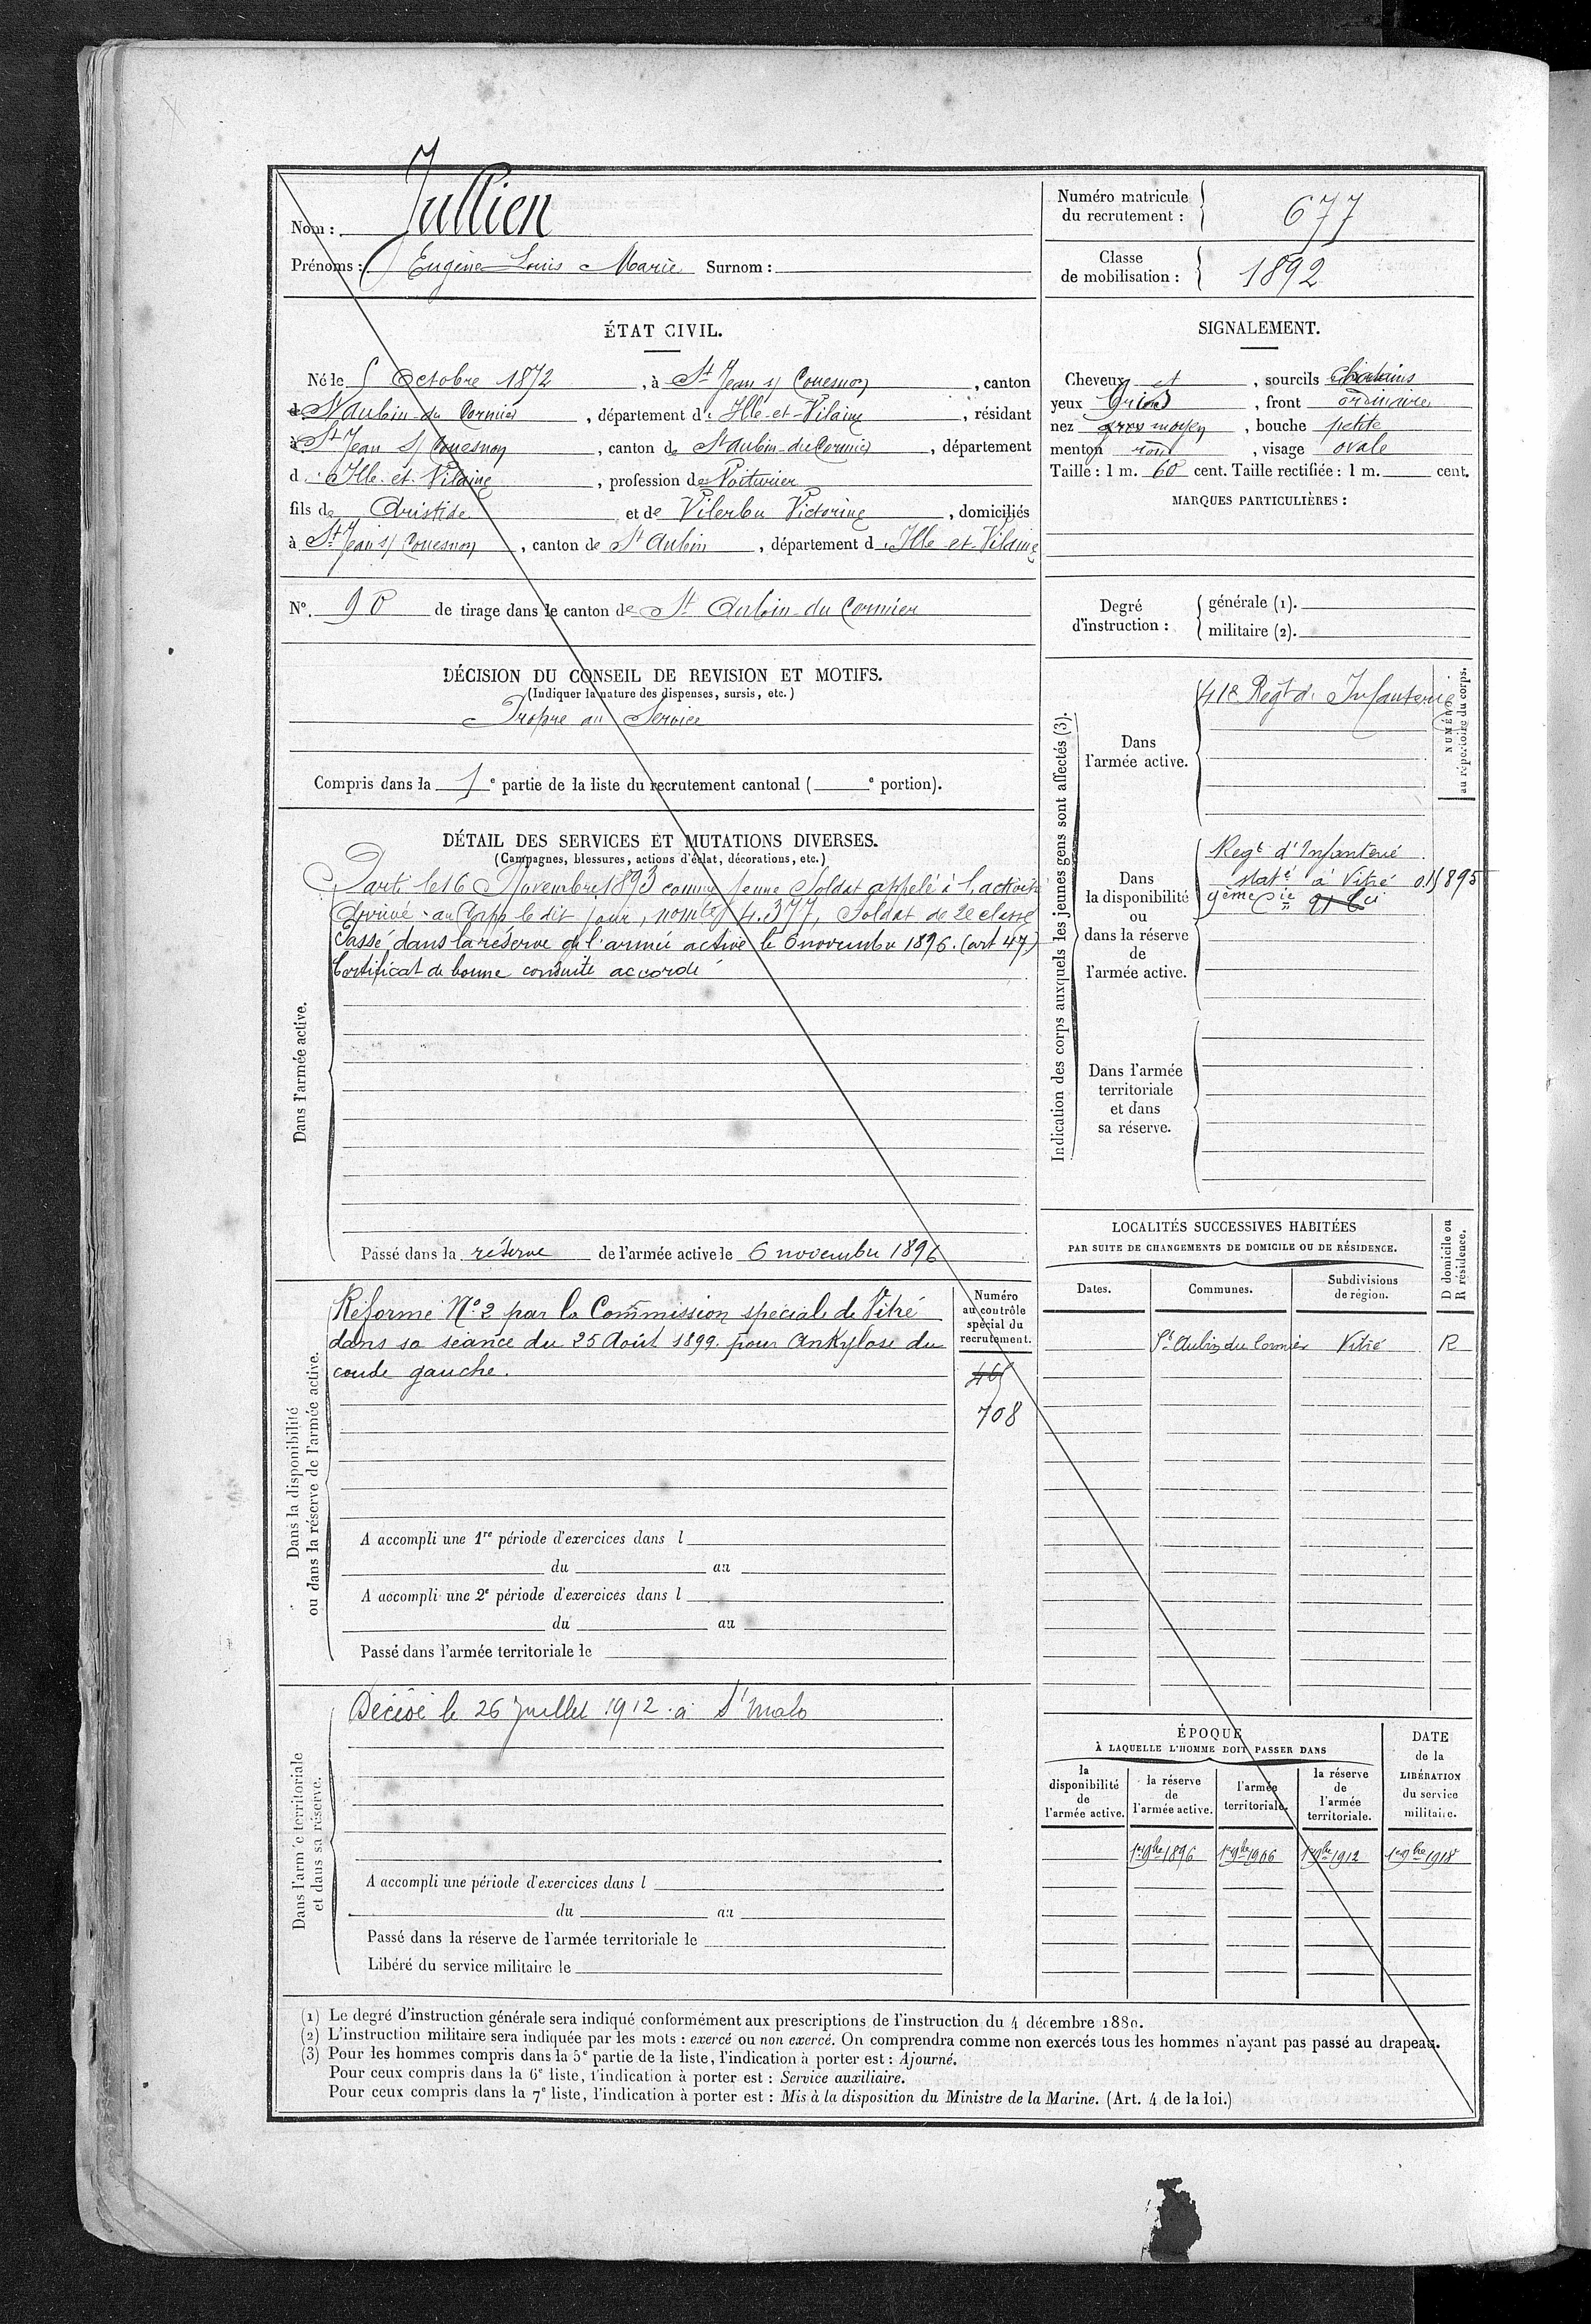 Nom : Jullien
Prénoms : Eugène Louis Marie Surnom :
Numéro matricule du recrutement : 677
Classe de mobilisation : 1892
ÉTAT CIVIL.
Né le 5 Octobre 1872, à St Jean s/ Couesnon, canton
de St Aubin-du Cormier, département d'Ille-et-Vilaine, résidant
à St Jean s/ Couesnon, canton de St Aubin-du Cormier, département
d'Ille-et-Vilaine, profession de Voiturier
fils de Aristide et de Vilerbu Victorine, domiciliés
à St Jean s/ Couesnon, canton de St Aubin, département d'Ille-et-Vilaine
N° 90 de tirage dans le canton de St Aubin-du Cormier
DÉCISION DU CONSEIL DE REVISION ET MOTIFS.
(Indiquer la nature des dispenses, sursis, etc.)
Propre au Service
Compris dans la 1e partie de la liste du recrutement cantonal ( e portion).
DÉTAIL DES SERVICES ET MUTATIONS DIVERSES.
(Campagnes, blessures, actions d'éclat, décorations, etc.)
Dans l'armée active.
Parti le 16 Novembre 1893 comme jeune Soldat appelé à l'activité
Arrivé au Corps le dit jour, nom le 4.377, Soldat de 2e classe
Passé dans la réserve de l'armée active le 6 novembre 1896. (art 47)
Certificat de bonne conduite accordé
Passé dans la réserve de l'armée active le 6 novembre 1896
Dans la disponibilité
ou dans la réserve de l'armée active.
Réformé N° 2 par la Commission spéciale de Vitré
dans sa séance du 25 Août 1899 pour Ankylose du
coude gauche.
Numéro
au contrôle
spécial du
recrutement.
708
A accompli une 1re période d'exercices dans l
du au
A accompli une 2e période d'exercices dans l
du au
Passé dans l'armée territoriale le
Dans l'armée territoriale
et dans sa réserve.
Décédé le 26 juillet 1912 à St Malo
A accompli une période d'exercices dans l
du au
Passé dans la réserve de l'armée territoriale le
Libéré du service militaire le
SIGNALEMENT.
Cheveux et, sourcils châtains
yeux gris, front ordinaire
nez moyen, bouche petite
menton rond, visage ovale
Taille : 1 m. 60 cent. Taille rectifiée : 1 m. cent.
MARQUES PARTICULIÈRES :
Degré d'instruction : générale (1).
militaire (2).
Indication des corps auxquels les jeunes gens sont affectés (3).
NUMÉRO
au répertoire du corps.
Dans
l'armée active.
41e Regt d'Infanterie
Dans
la disponibilité
ou
dans la réserve
de
l'armée active.
Regt d'Infanterie
staté à Vitré
9ème Cie
Dans l'armée
territoriale
et dans
sa réserve.
LOCALITÉS SUCCESSIVES HABITÉES
PAR SUITE DE CHANGEMENTS DE DOMICILE OU DE RÉSIDENCE.
D domicile ou
R résidence.
Dates. Communes. Subdivisions de région.
St Aubin du Cormier Vitré R
ÉPOQUE
À LAQUELLE L'HOMME DOIT PASSER DANS
DATE
de la
LIBÉRATION
du service
militaire.
la disponibilité de l'armée active.
la réserve de l'armée active.
l'armée territoriale.
la réserve de l'armée territoriale.
1er 9bre 1896 1er 9bre 1906 1er 9bre 1912 1er 9bre 1918
(1) Le degré d'instruction générale sera indiqué conformément aux prescriptions de l'instruction du 4 décembre 1880.
(2) L'instruction militaire sera indiquée par les mots : exercé ou non exercé. On comprendra comme non exercés tous les hommes n'ayant pas passé au drapeau.
(3) Pour les hommes compris dans la 5e partie de la liste, l'indication à porter est : Ajourné.
Pour ceux compris dans la 6e liste, l'indication à porter est : Service auxiliaire.
Pour ceux compris dans la 7e liste, l'indication à porter est : Mis à la disposition du Ministre de la Marine. (Art. 4 de la loi.)